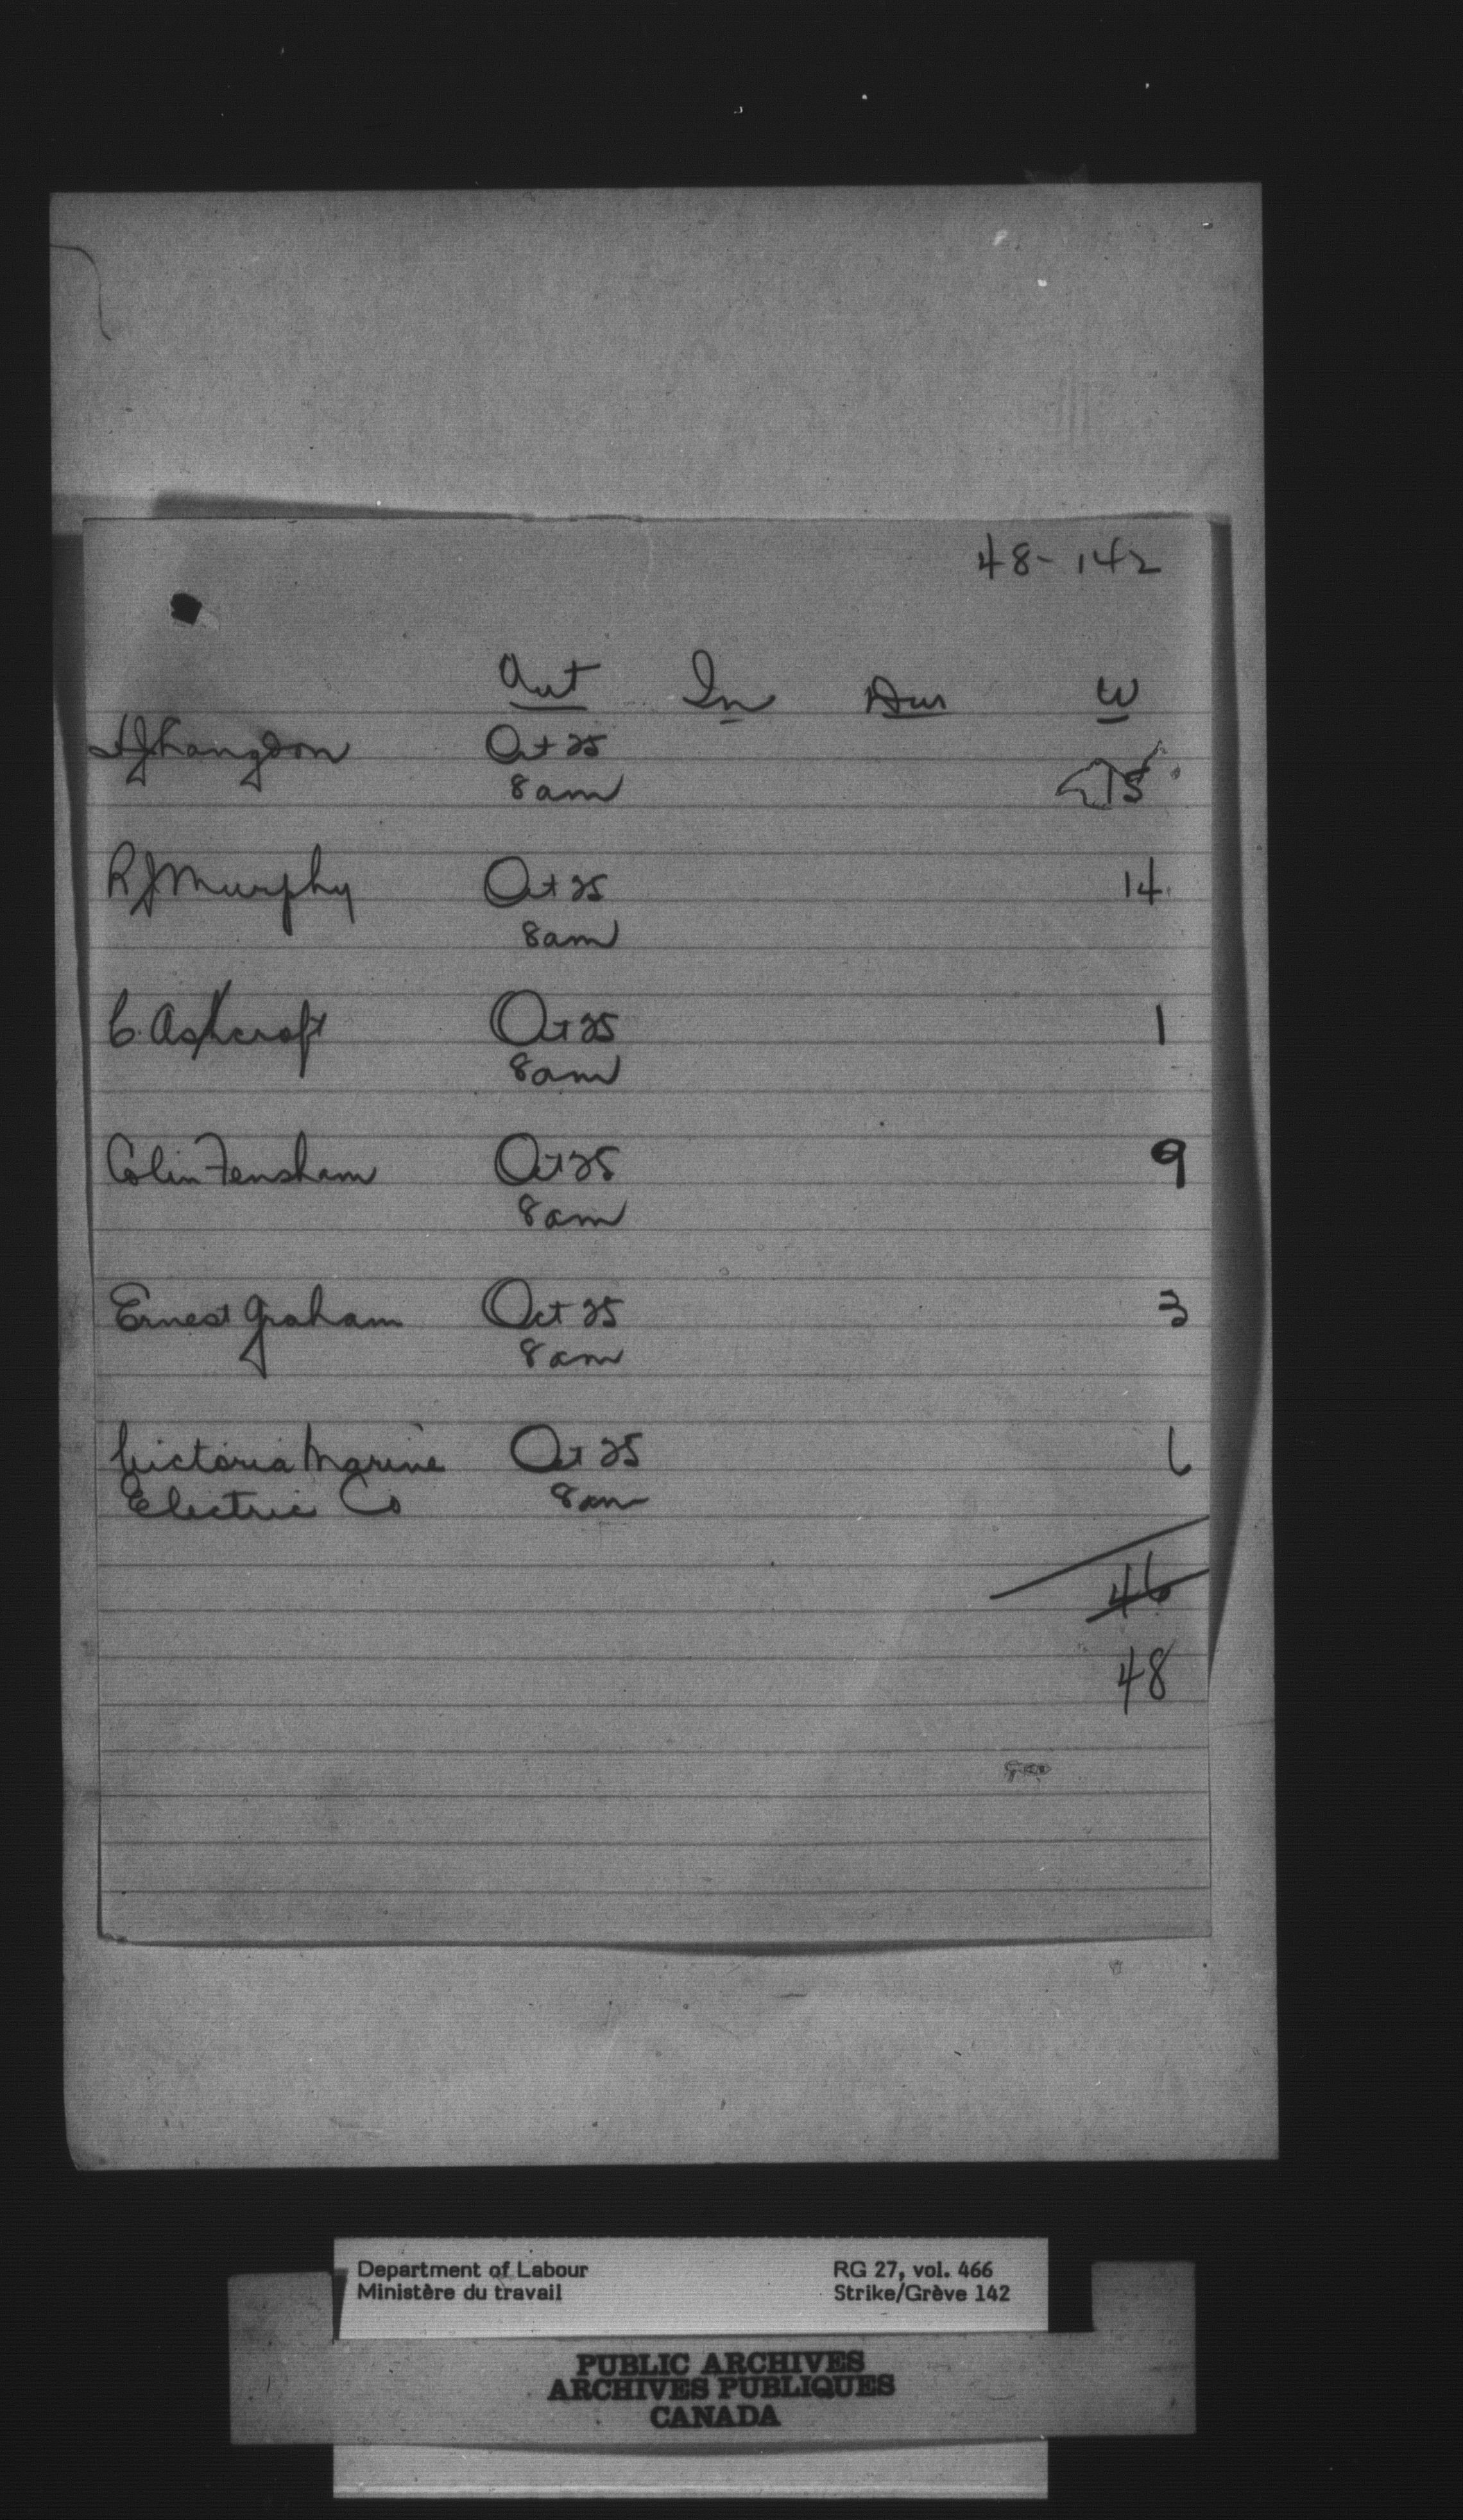 48-142
Out In Dur W
A J Langdon Oct 25
8am 15
R J Murphy Oct 25 14
8am
C. Ashcroft Oct 25 1
8am
Colin Fensham Oct 25 9
8am
Ernest Graham Oct 25 3
8am
Victoria Marine Oct 25 6
Electric Co 8am
46
48
Department of Labour RG 27, vol. 466
Ministère du travail Strike/Grève 142
PUBLIC ARCHIVES
ARCHIVES PUBLIQUES
CANADA